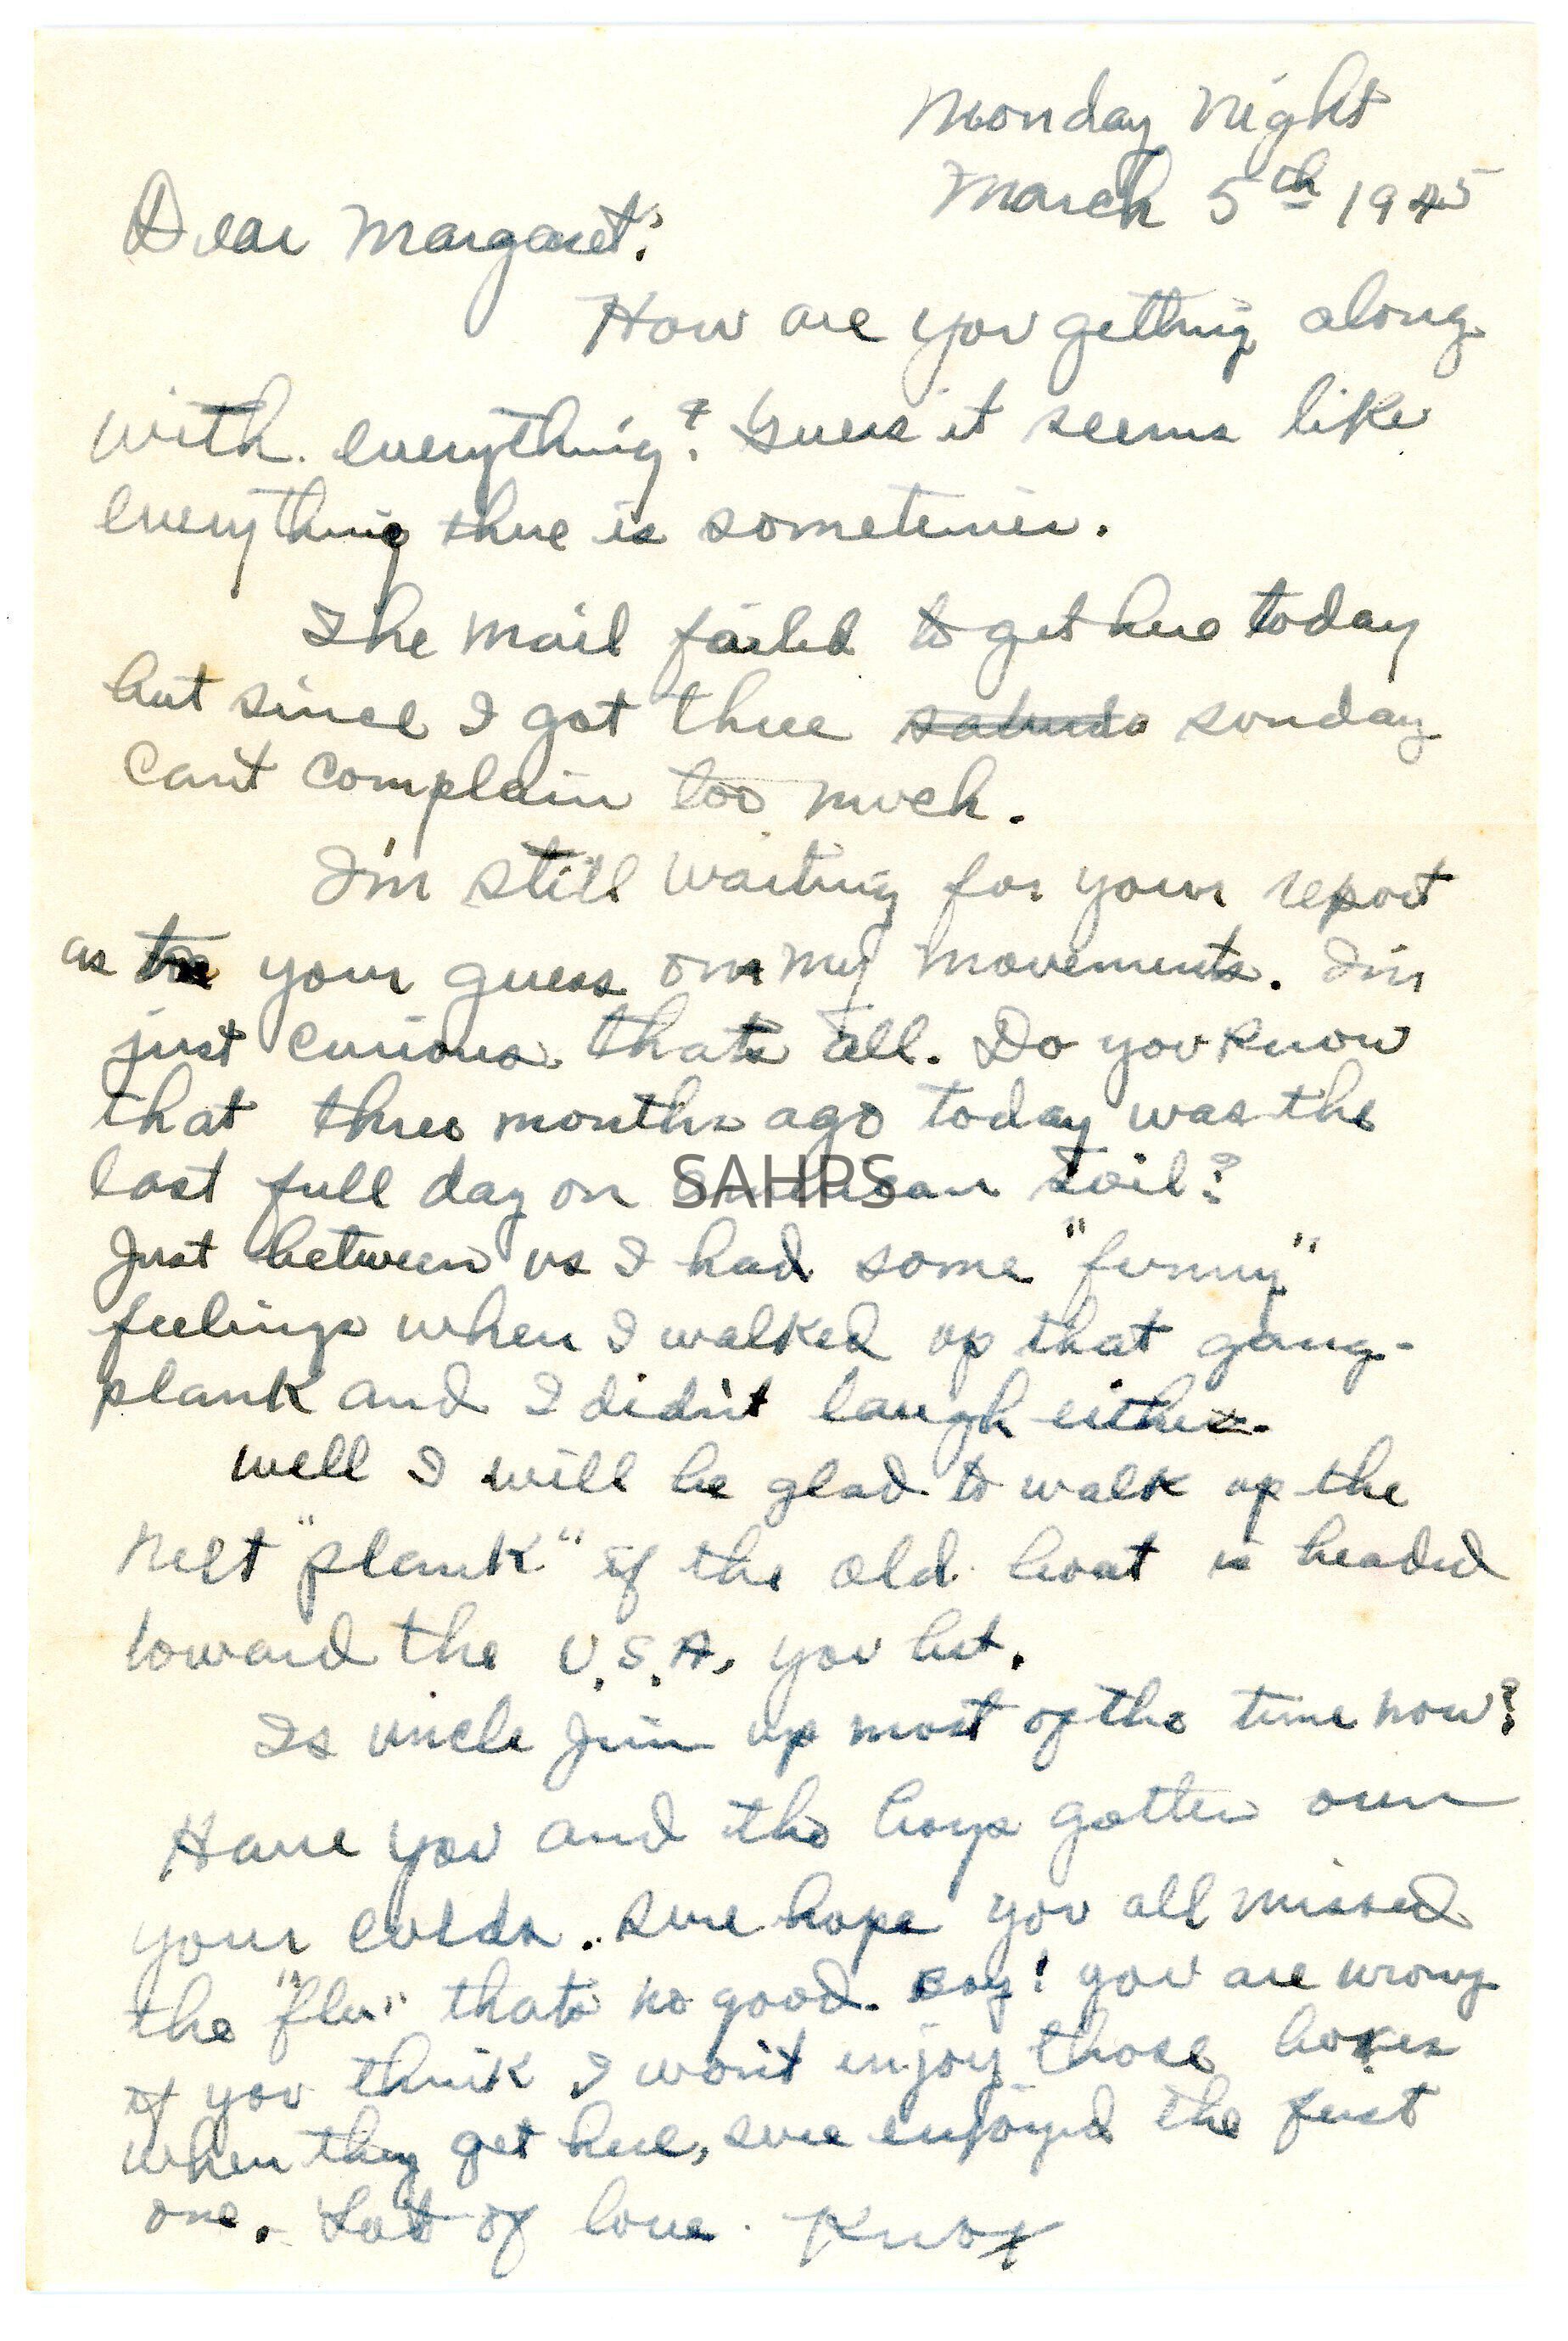 Monday Night
March 5th 1945
Dear Margaret:
How are you getting along
with everything? Guess it seems like
everything there is sometimes.
The mail failed to get here today
but since I got three saturda sunday
can't complain too much.
I'm still waiting for your report
as to your guess on my movements. I'm
just curious thats all. Do you know
that three months ago today was the
last full day on American soil?
SAHPS
Just between us I had some "funny"
feelings when I walked up that gang-
plank and I didn't laugh either.
Well I will be glad to walk up the
next "plank" if the old boat is headed
toward the U.S.A. you bet.
Is uncle Jim up most of the time now?
Have you and the boys gotten over
your colds. Sure hope you all missed
the "flu" thats no good. Boy! you are wrong
if you think I won't enjoy those boxes
when they get here, sure enjoyed the first
one. Lots of love. Knox